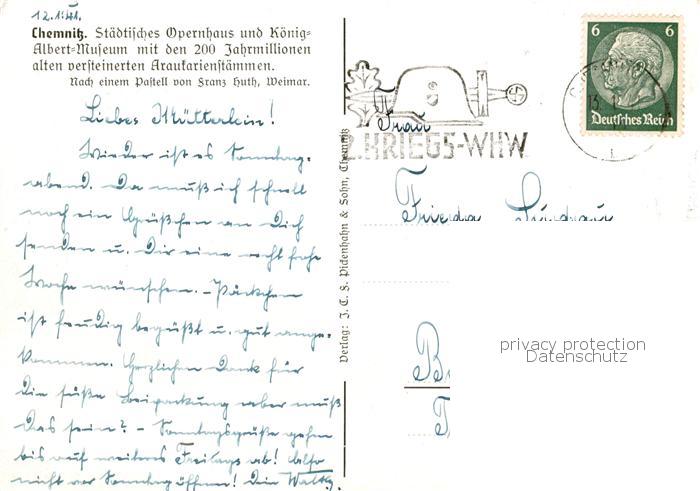 12.1.41.
Chemnitz. Städtisches Opernhaus und König-
Albert-Museum mit den 200 Jahrmillionen
alten versteinerten Araukarienstämmen.
Nach einem Pastell von Franz Huth, Weimar.
Liebes Mütterlein!
Wieder ist es Sonntag-
abend. Da muß ich schnell
noch ein Grüßchen an Dich
senden u. Dir eine recht frohe
Woche wünschen. – Päckchen
ist freudig begrüßt u. gut ange-
kommen. Herzlichen Dank für
die süße Beipackung aber muß
das sein? – Sonntagsgrüße gehen
bis auf weiteres Freitags ab! Also
nicht vor Sonntag öffnen! Dein
Verlag: J. C. F. Pickenhahn & Sohn, Chemnitz
6 6
Deutsches Reich
2. KRIEGS-WHW
Frau
Frieda
privacy protection
Datenschutz